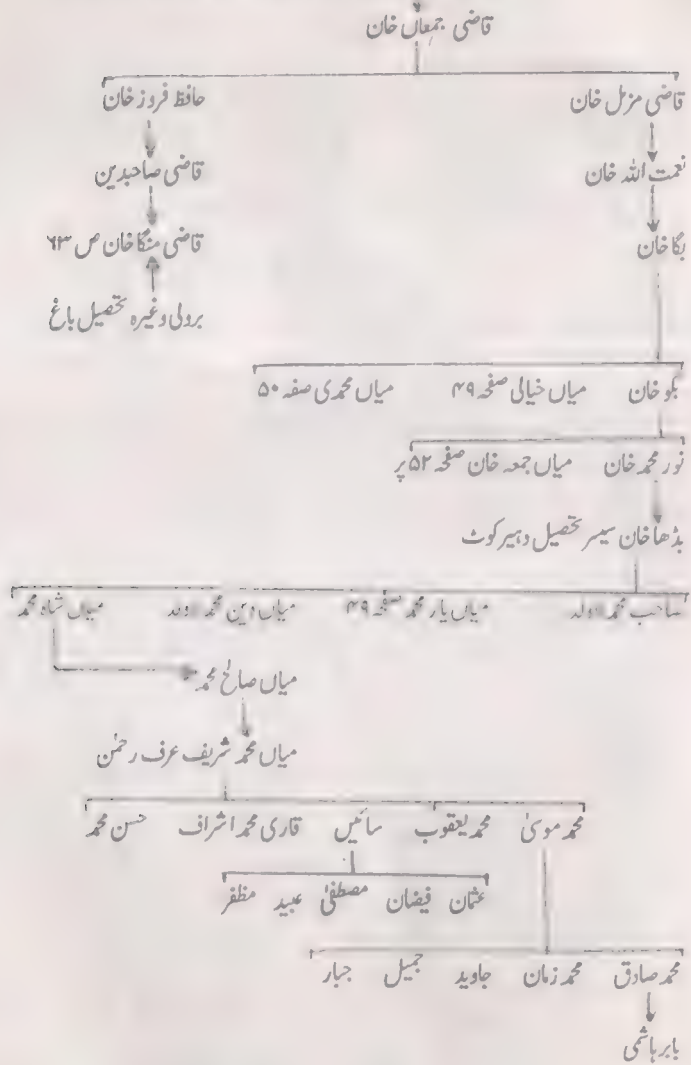 قاضی جمعاں خان
قاضی مزمل خان حافظ فروز خان
نعمت اللہ خان قاضی صاحبدین
بگا خان قاضی منگا خان ص ۶۳
برولی وغیرہ تحصیل باغ
بگو خان میاں خیالی صفحہ ۴۹ میاں محمدی صفہ ۵۰
نور محمد خان میاں جمعہ خان صفحہ ۵۲ پر
بڈھا خان سیسر تحصیل دہیر کوٹ
صاحب محمد لاولد میاں یار محمد صفحہ ۴۹ میاں دین محمد لاولد میاں شاہ محمد
میاں صالح محمد
میاں محمد شریف عرف رحمٰن
محمد موسیٰ محمد یعقوب سائیں قاری محمد اشراف حسن محمد
عثمان فیضان مصطفیٰ عبید مظفر
محمد صادق محمد زمان جاوید جمیل جبار
بابر ہاشمی